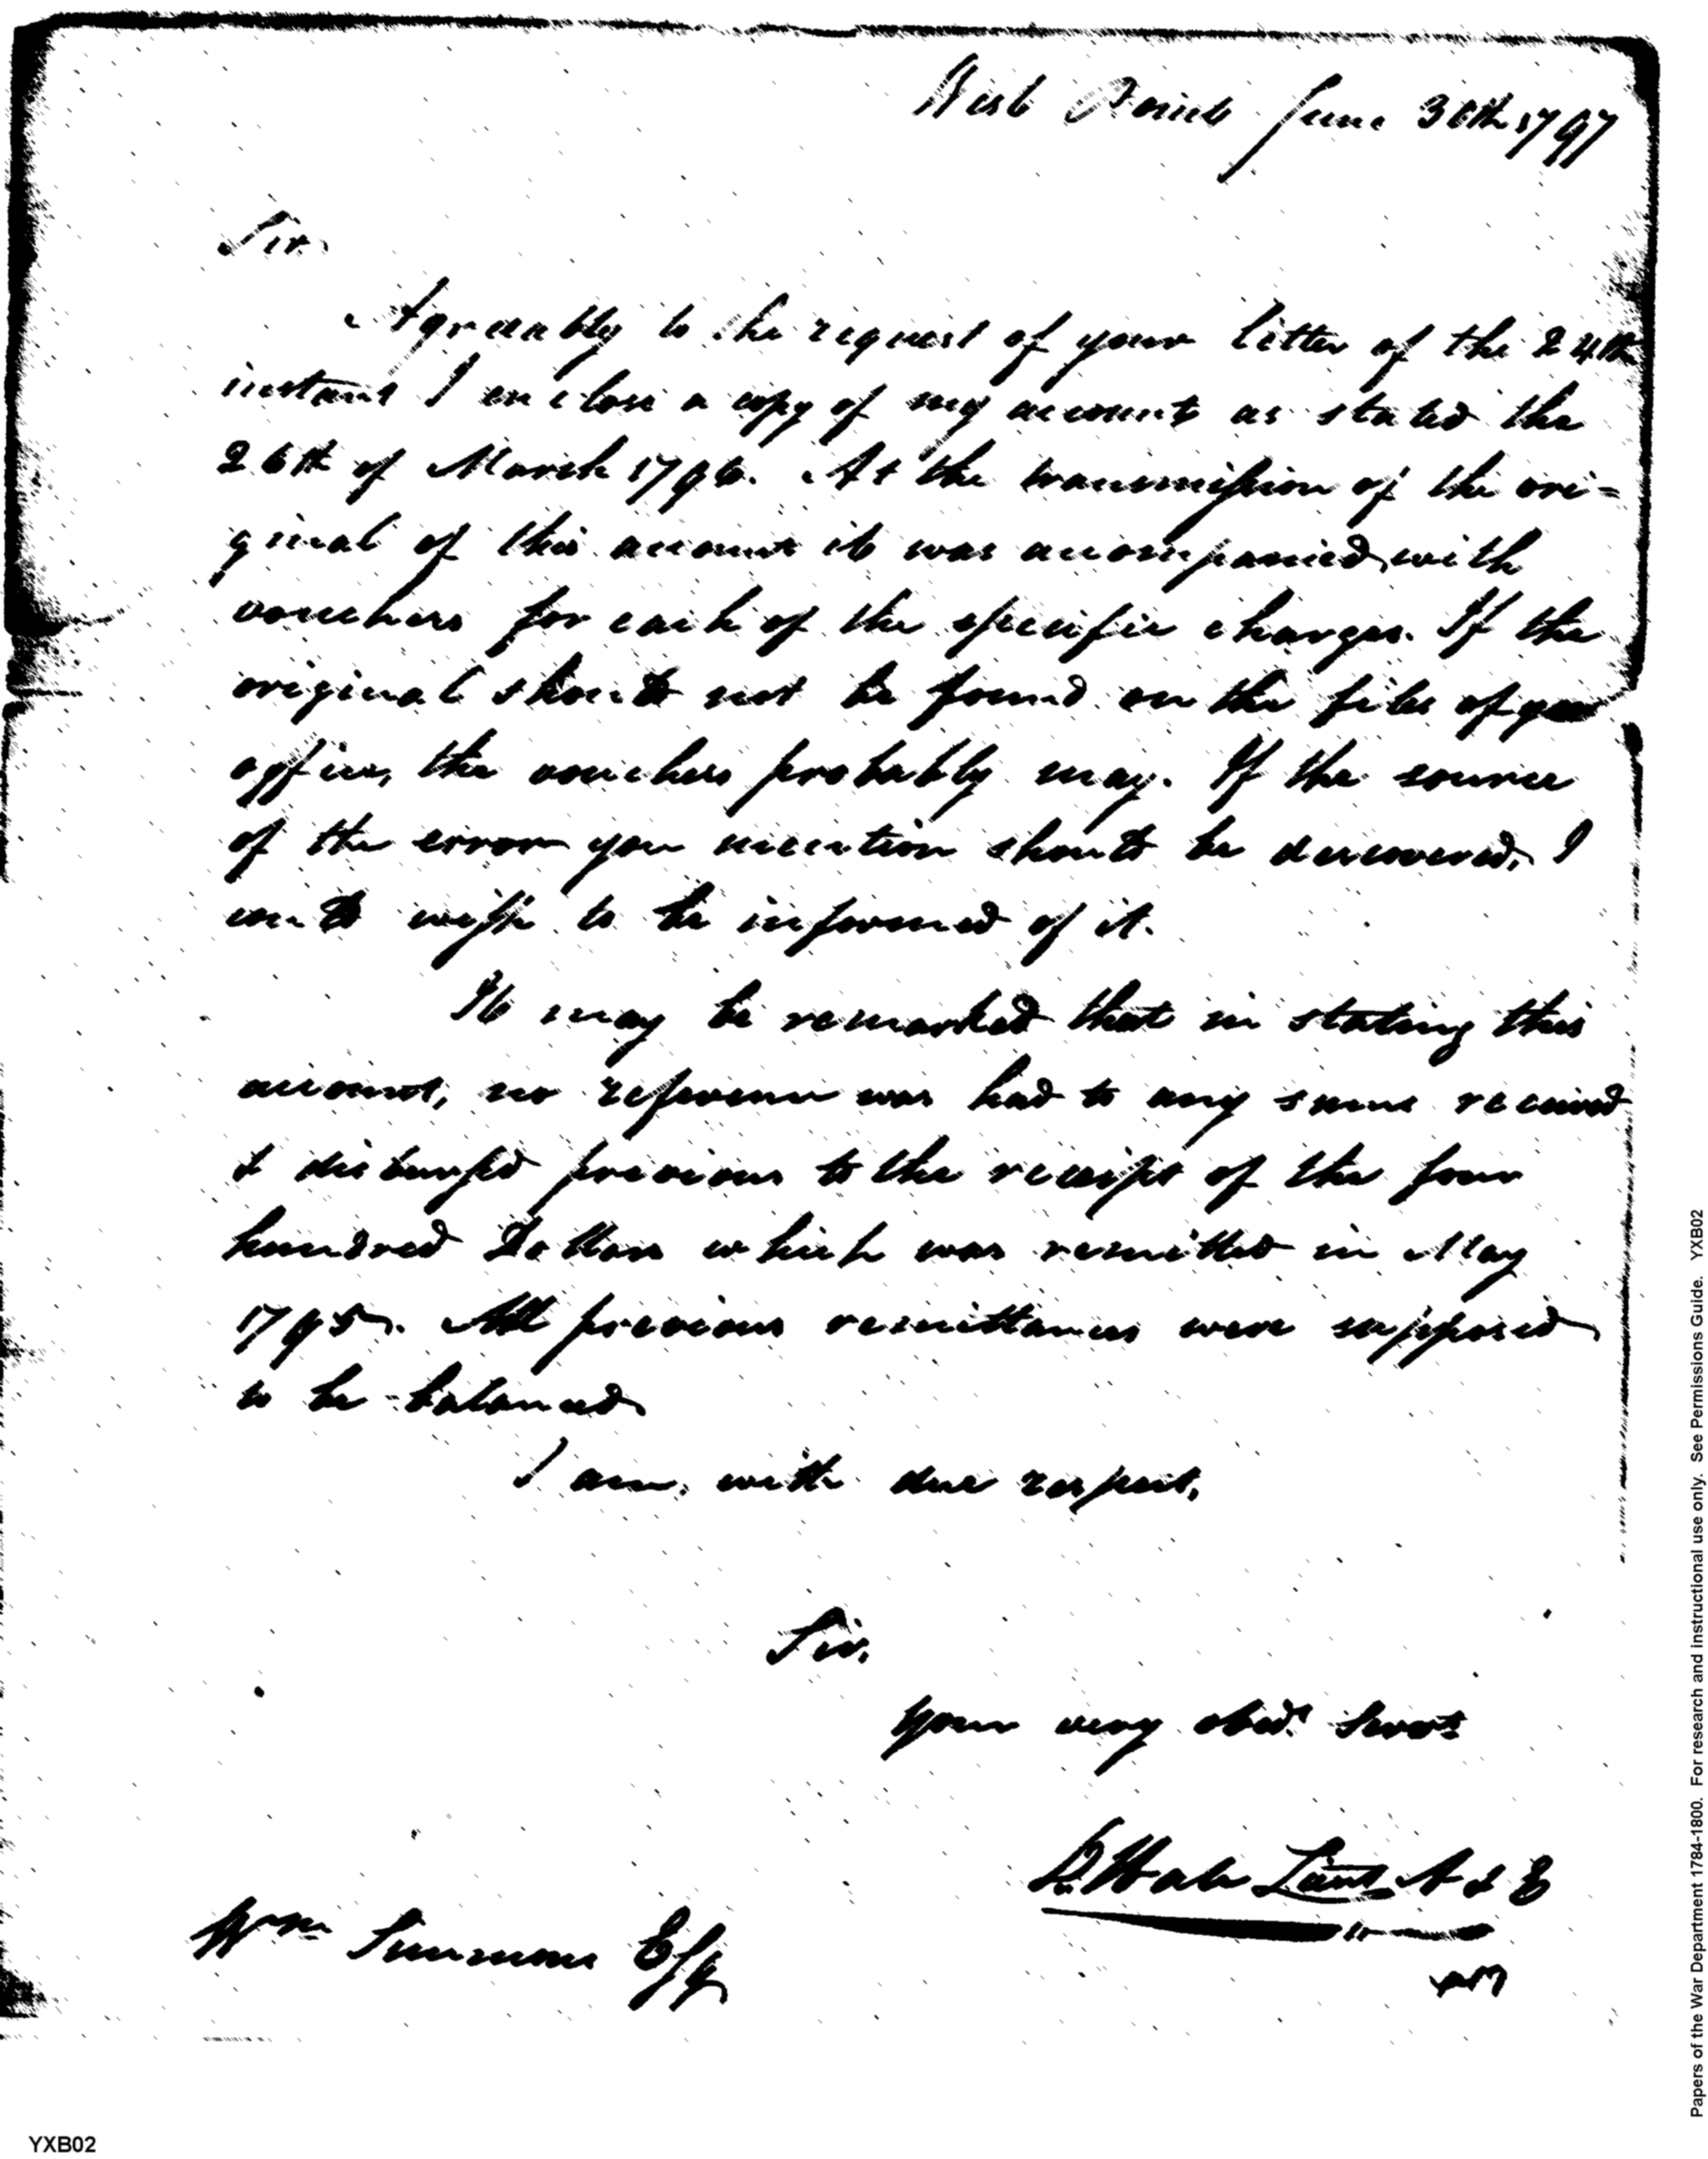 West Point June 30th 1797
Sir.
Agreeably to the request of your letter of the 24th
instant I enclose a copy of my account as stated the
26th of March 1796. At the transmission of the ori=
ginal of this account it was accompanied with
vouchers for each of the specific charges. If the
original should not be found on the files of your
office, the vouchers probably may. If the source
of the error you mention should be discovered, I
would wish to be informed of it.
It may be remarked that in stating this
account, no reference was had to any sums received
& disbursed previous to the receipt of the four
hundred Dollars which was remitted in May
1795. All previous remittances were supposed
to be balanced
I am, with due respect,
Sir,
Your very obedt. Servt.
D. Hale Lieut A & E
Wm Simmons Esq
YXB02
Papers of the War Department 1784-1800. For research and instructional use only. See Permissions Guide. YXB02